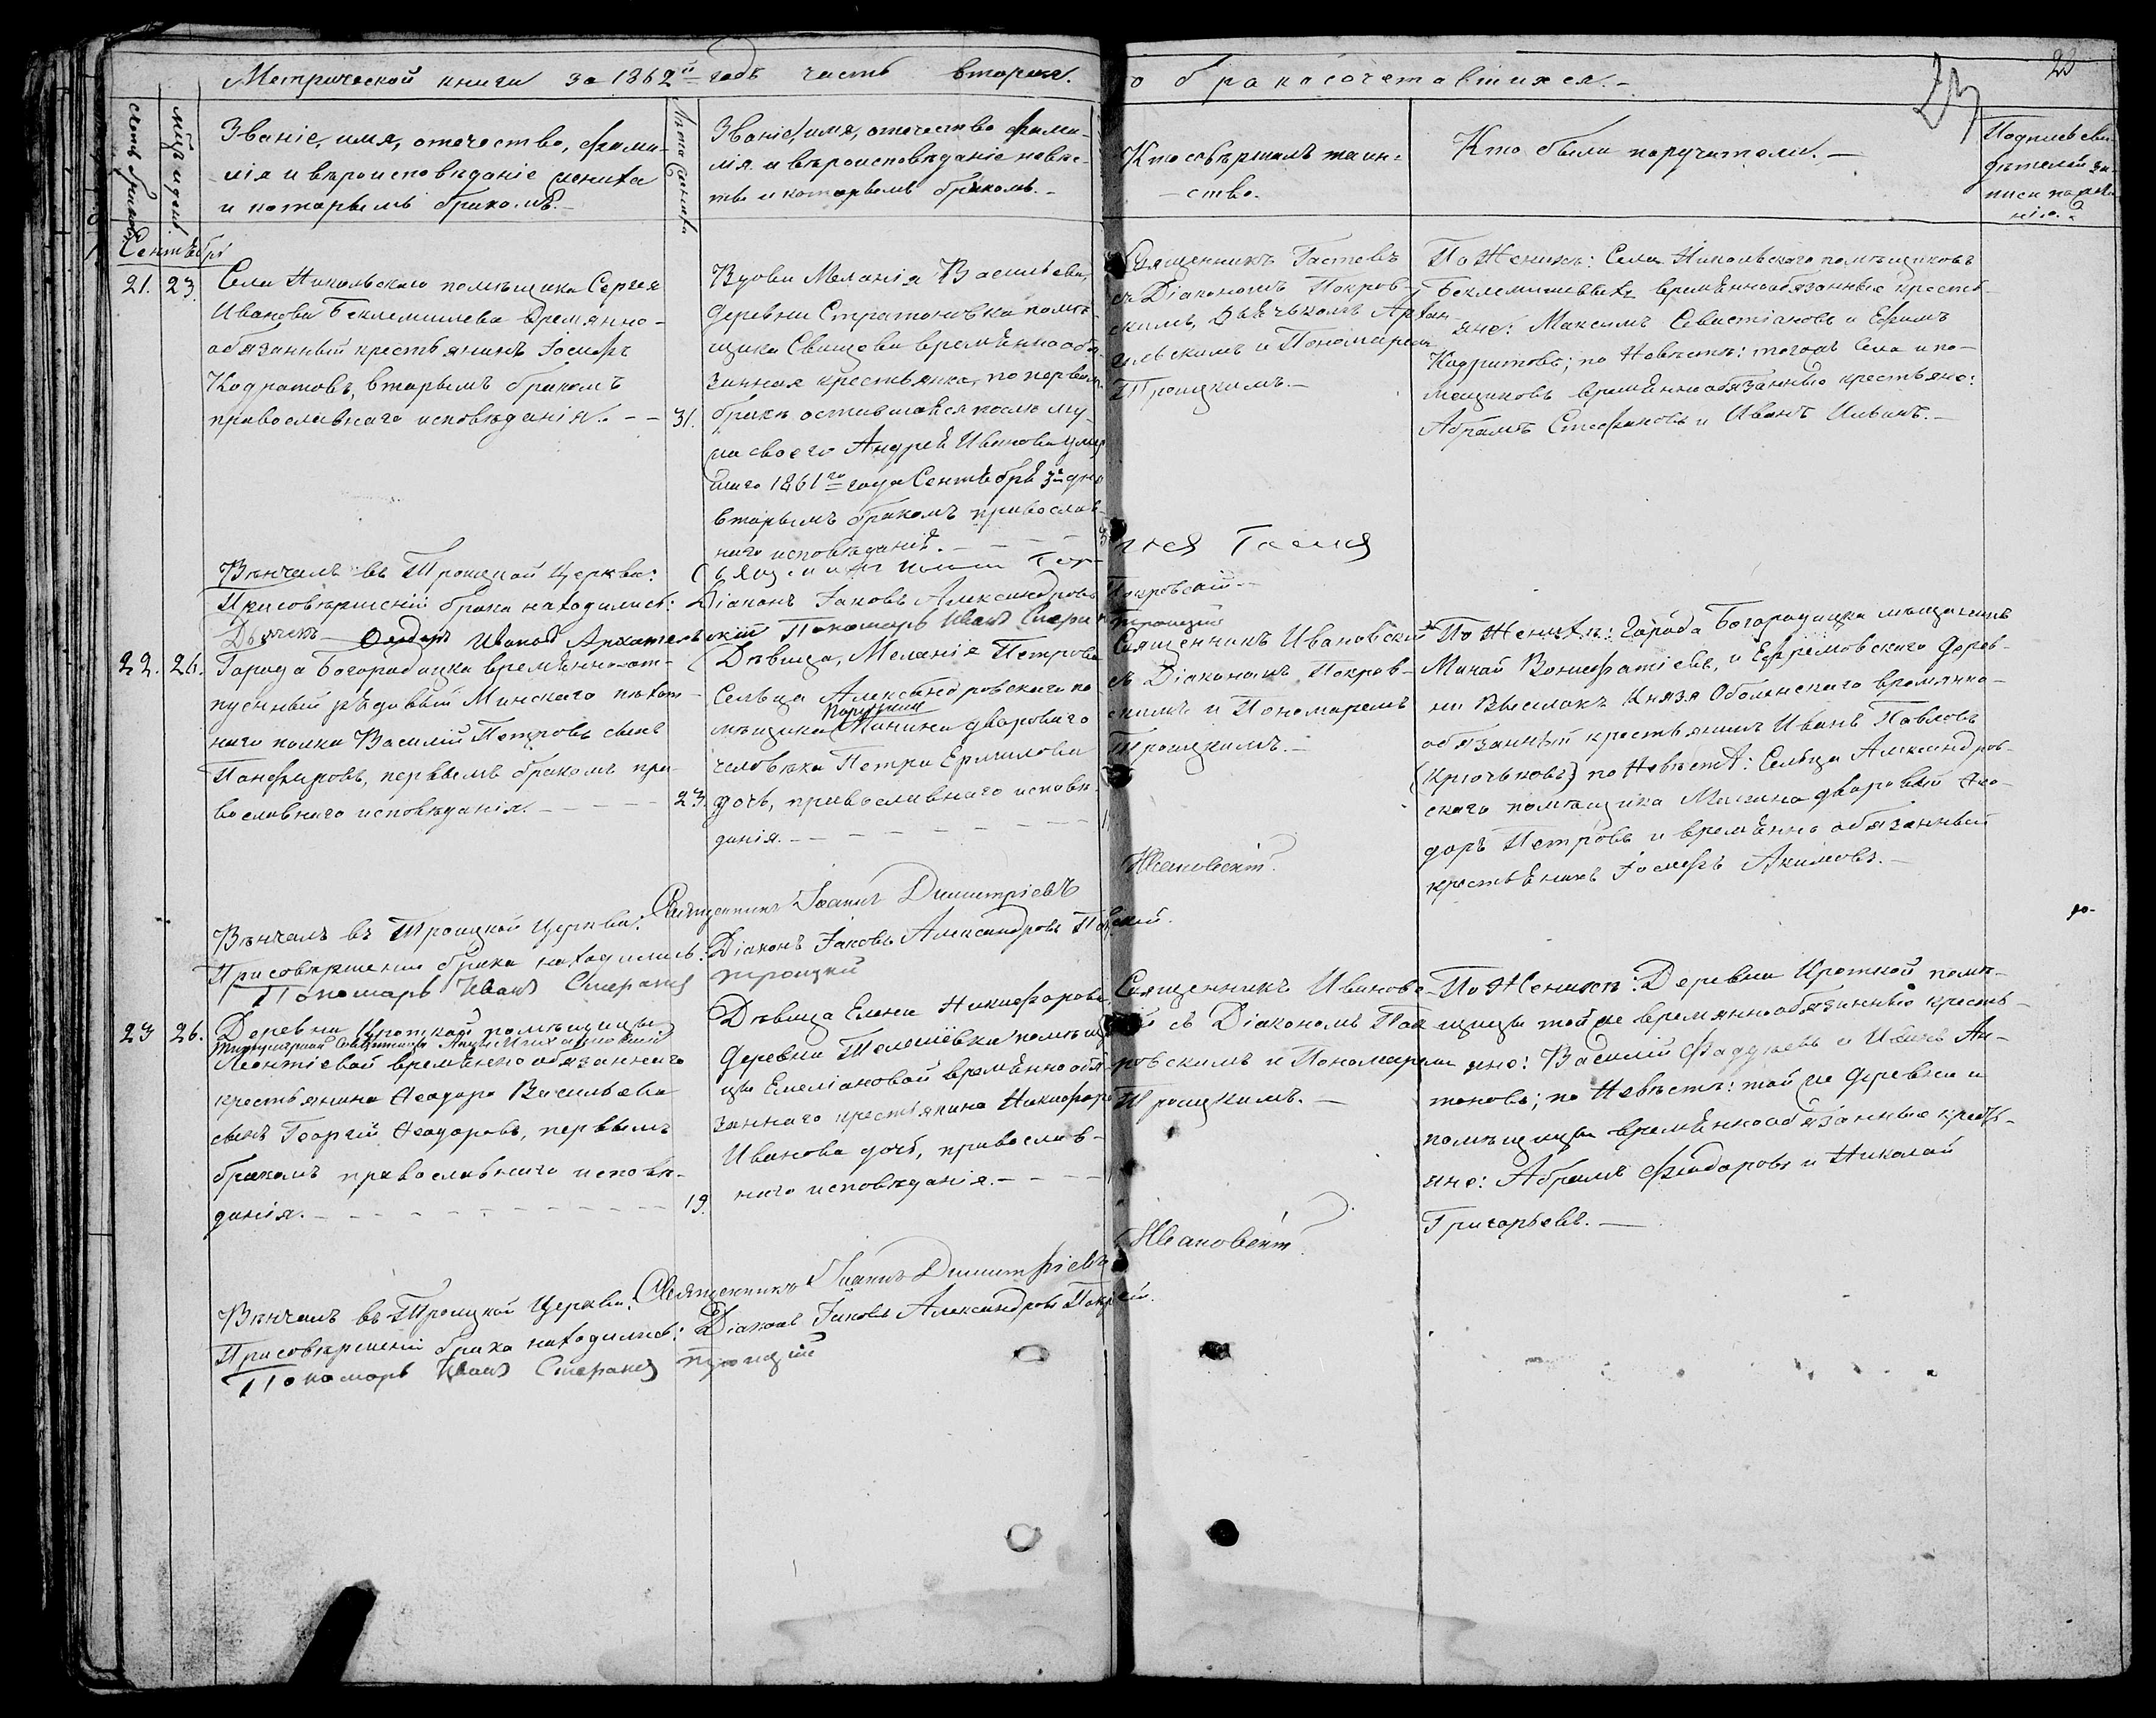 Метрической книги за 1862й годъ часть вторая.
о бракосочетавшихся.-
23
Счетъ браковъ.
Мѣсяцъ и день
Званіе, имя, отечество, фами-
лія и вѣроисповѣданіе жениха
и которымъ бракомъ.-
Лѣта жениха
Званіе, имя, отечество фами-
лія и вѣроисповѣданіе невѣс-
ты и которымъ бракомъ.-
Кто совѣршалъ таин-
-ство.
Кто были поручители.-
Подпись сви-
дѣтелей за-
писи по жела-
нію.
Сентябрь
21. 23.
Села Никольскаго помѣщика Сергея
Иванова Беклемишева временно-
обязанный крестьянинъ Іосифъ
Кодратовъ, вторымъ бракомъ
православнаго исповѣданія.--
31.
Вдова Меланія Васильева,
деревни Стратоновка помѣ-
щика Свищева временнообя-
занная крестьянка, по первом
бракѣ оставшаяся послѣ му-
жа своего Андрея Иванова умер
шаго 1861го года Сентября 3го дня
вторымъ бракомъ православ-
наго исповѣданія.---
Священникъ Гастевъ
съ Діакономъ Покров-
скимъ, Дьячькомъ Архан-
гельскимъ и Пономаремъ
Троицкимъ.-
По Женихѣ: Села Никольскаго помѣщиковъ
Беклемишевыхъ временнообязанные кресть-
яне: Максимъ Севастіановъ и Ефимъ
Кодратовъ; по Невѣстѣ: тогожъ Села и по-
мещиковъ временнообязанные крестьяне:
Абрамъ Стефановъ и Иванъ Ильинъ.-
Вѣнчалъ въ Троицкой Церкви:
При совѣршеніи брака находились: Діаконъ Іаковъ Александровъ Покровскій-
Дьячекъ Ѳедоръ Ивановъ Архангельскій Пономарь Иванъ Стефановъ Троицкій
22. 26.
Города Богородицка временно-от-
пусный рядовый Минскаго пѣхот-
наго полка Василій Петровъ сынъ
Панферовъ, первымъ бракомъ пра-
вославнаго исповѣданія.----
23.
Дѣвица, Меланія Петрова
Сельца Александровскаго по-
Порутчик
мѣщика Минина двороваго
человѣка Петра Ермилова
дочь, православнаго исповѣ-
данія.-------
Священникъ Ивановскій
съ Діакономъ Покров-
скимъ и Пономаремъ
Троицкимъ.-
По Женихѣ: Города Богородицка мѣщанинъ
Минай Вонифатіевъ, и Ефремовскаго дерев-
ни Выселокъ Князя Оболенскаго временно-
обязанный крестьянинъ Иванъ Павловъ
(Крючьковъ) по Невѣстѣ: Сельца Александров-
скаго помѣщика Минина дворовый Ѳео-
доръ Петровъ и временно обязанный
крестьянинъ Іосифъ Акимовъ.-
Вѣнчалъ въ Троицкой Церкви: Священникъ Іоаннъ Димитріевъ Ивановскій
При совѣршеніи брака находились: Діаконъ Іаковъ Александровъ
Пономарь Иванъ Стефановъ Троицкій
23 26.
Деревни Кроткой помѣщицы
Титулярной Совѣтницы
Леонтіевой временнообязаннаго
крестьянина Ѳеодора Васильева
сынъ Георгій Ѳеодоровъ, первымъ
бракомъ православнаго исповѣ-
данія.----------
19.
Дѣвица Елена Никифорова
Деревни Телешевки помѣщи-
цы Емеліановой временнообя-
заннаго крестьянина Никифора
Иванова дочь, православ-
наго исповѣданія.----
Священникъ Ивановс-
кій съ Діакономъ Пок-
ровскимъ и Пономаремъ
Троицкимъ.-
По Женихѣ: Деревни Кроткой помѣ-
щицы той же временнообязанные кресть-
яне: Василій Фаддѣевъ и Иванъ Ан-
тоновъ; по Невѣстѣ: той же деревни и
помѣщицы временнообязанные кресть-
яне: Абрамъ Ѳеодоровъ и Николай
Григорьевъ.-
Вѣнчалъ въ Троицкой Церкви: Священникъ Іоаннъ Димитріевъ Ивановскій
При совѣршеніи брака находились: Діаконъ Іаковъ Александровъ
Пономарь Иванъ Стефановъ Троицкій